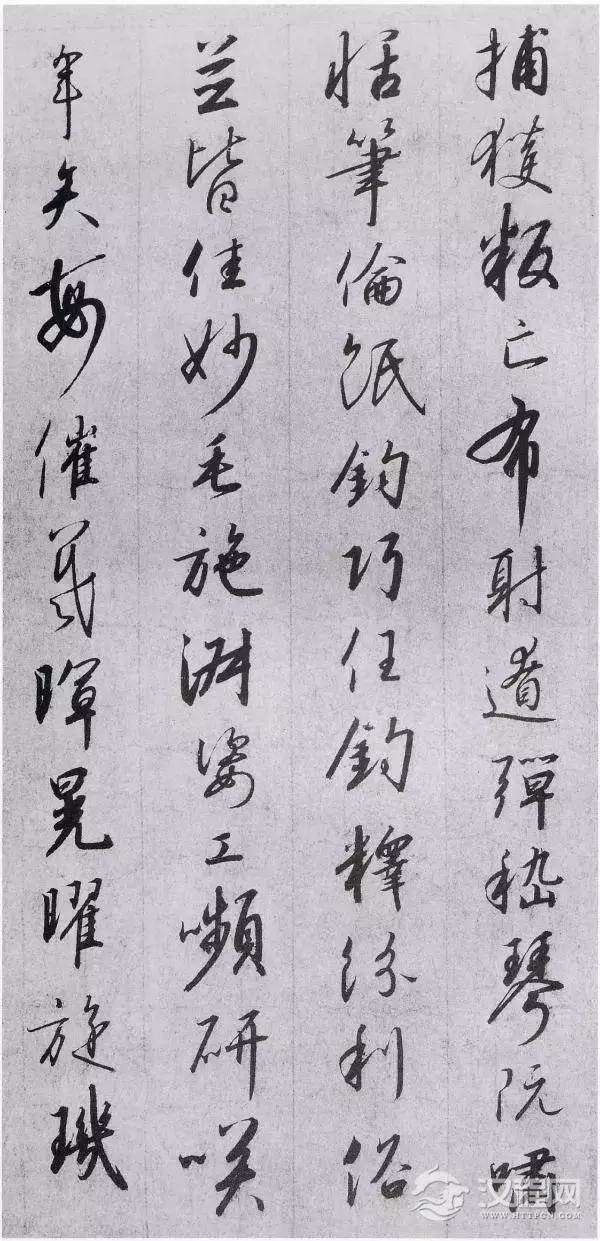 捕獲叛亡布射遼彈嵇琴阮嘯
恬筆倫紙鈞巧任釣釋紛利俗
並皆佳妙毛施淑姿工嚬研咲
年矢每催羲暉晃曜旋璣
汉程网
WWW.HTTPCN.COM